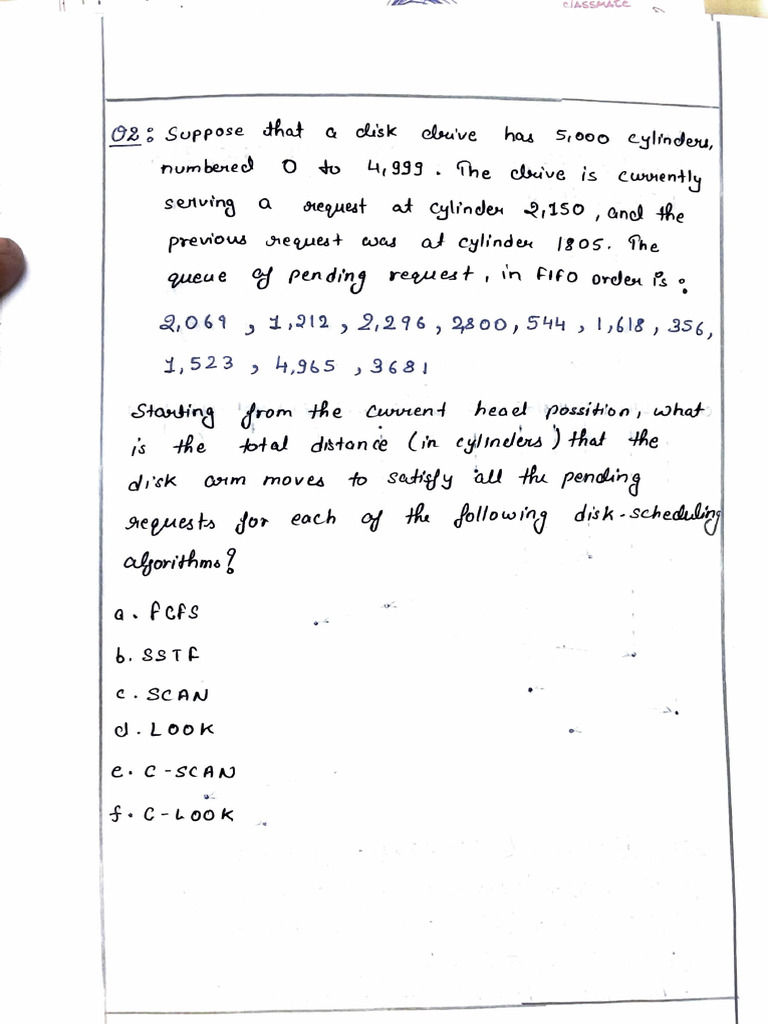 CLASSMATE
Q2: Suppose that a disk drive has 5,000 cylinders,
numbered 0 to 4,999. The drive is currently
serving a request at cylinder 2,150, and the
previous request was at cylinder 1805. The
queue of pending request, in FIFO order is:
2,069, 1,212, 2,296, 2800, 544, 1,618, 356,
1,523, 4,965, 3681
Starting from the current head possition, what
is the total distance (in cylinders) that the
disk arm moves to satisfy all the pending
requests for each of the following disk-scheduling
algorithms?
a. FCFS
b. SSTF
c. SCAN
d. LOOK
e. C-SCAN
f. C-LOOK